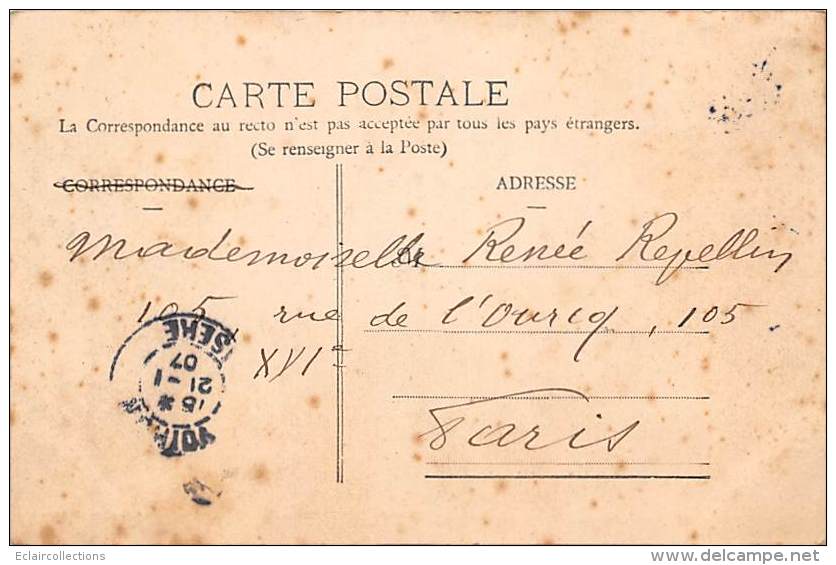 CARTE POSTALE
La Correspondance au recto n'est pas acceptée par tous les pays étrangers.
(Se renseigner à la Poste)
CORRESPONDANCE
ADRESSE
Mademoiselle Renée Repellin
105, rue de l'Ourcq, 105
XVIe
Paris
ISERE
07
21 - 1
15 *
Eclaircollections
www.delcampe.net